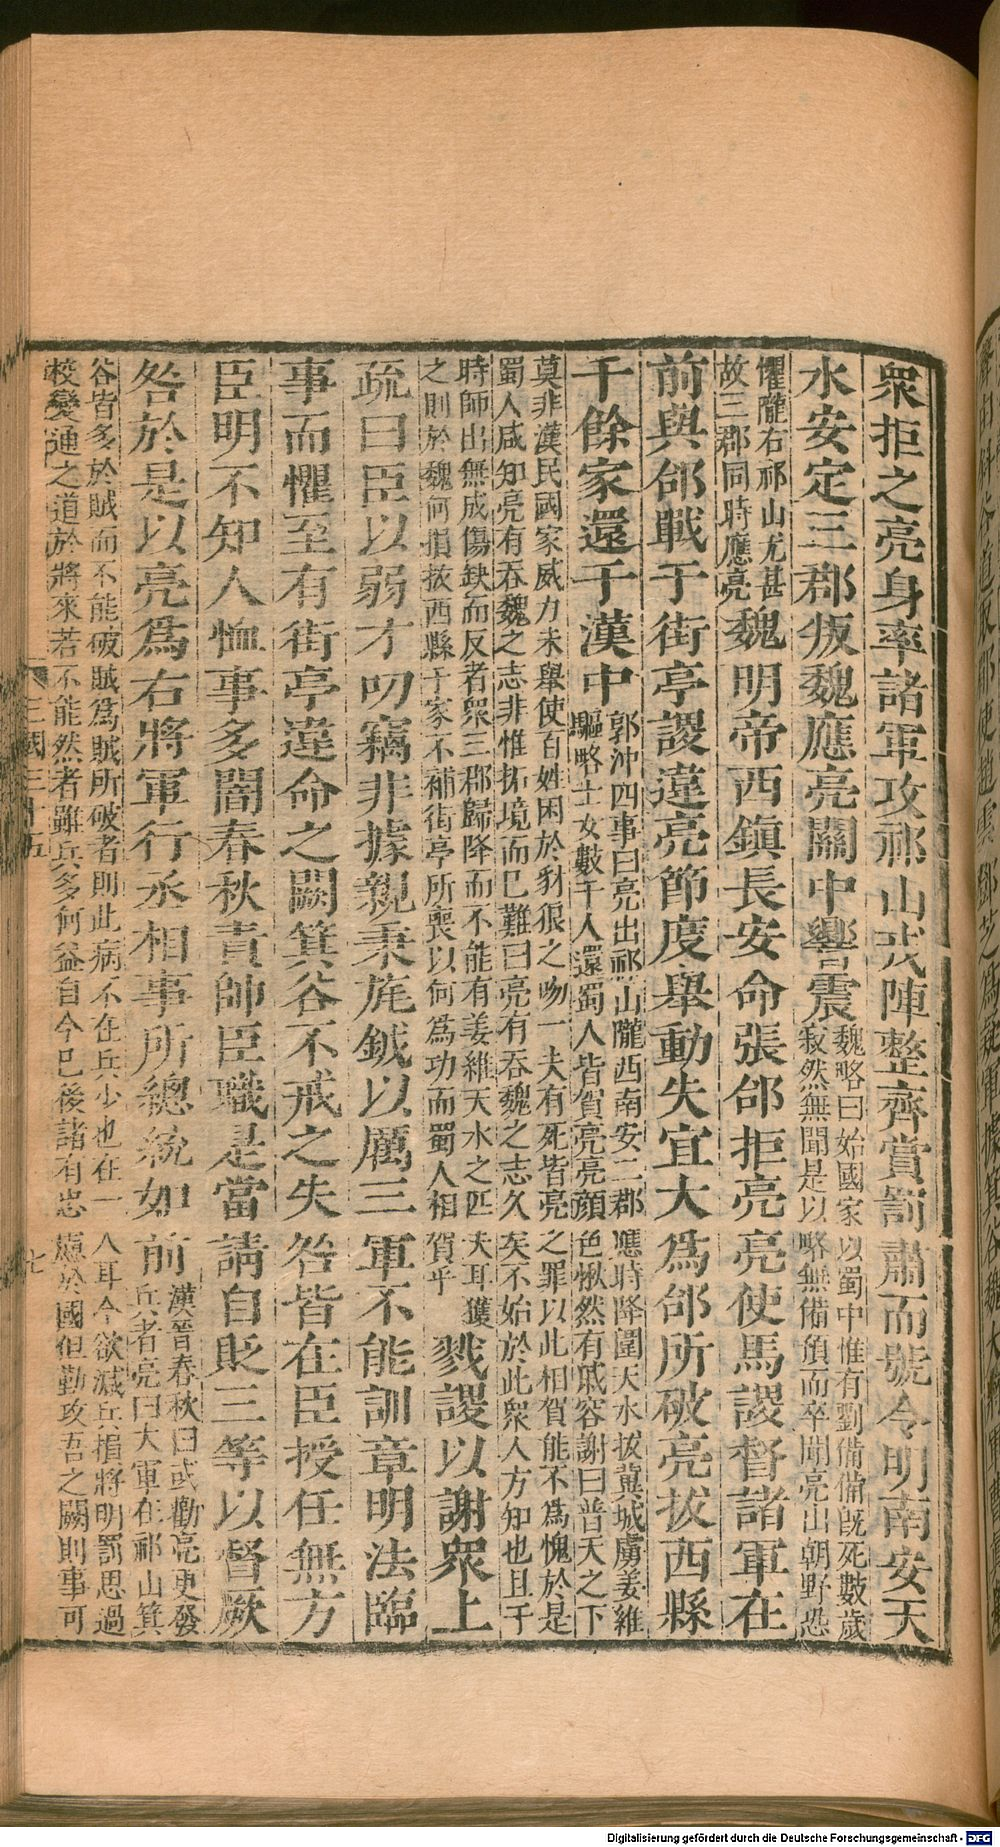 衆拒之亮身率諸軍攻祁山戎陣整齊賞罰肅而號令明南安天
水安定三郡叛魏應亮關中響震
魏略曰始國家以蜀中惟有劉備備既死數歲
寂然無聞是以略無備預而卒聞亮出朝野恐
懼隴右祁山尤甚
故三郡同時應亮
魏明帝西鎮長安命張郃拒亮亮使馬謖督諸軍在
前與郃戰于街亭謖違亮節度舉動失宜大為郃所破亮拔西縣
千餘家還于漢中
郭沖四事曰亮出祁山隴西南安二郡應時降圍天水拔冀城虜姜維
驅略士女數千人還蜀人皆賀亮亮顏色愀然有戚容謝曰普天之下
莫非漢民國家威力未舉使百姓困於豺狼之吻一夫有死皆亮之罪以此相賀能不為愧於是
蜀人咸知亮有吞魏之志非惟拓境而已難曰亮有吞魏之志久矣不始於此衆人方知也且于
時師出無成傷缺而反者衆三郡歸降而不能有姜維天水之匹夫耳獲
之則於魏何損拔西縣千家不補街亭所喪以何為功而蜀人相賀乎
戮謖以謝衆上
疏曰臣以弱才叨竊非據親秉旄鉞以厲三軍不能訓章明法臨
事而懼至有街亭違命之闕箕谷不戒之失咎皆在臣授任無方
臣明不知人恤事多闇春秋責帥臣職是當請自貶三等以督厥
咎於是以亮為右將軍行丞相事所總統如前
漢晉春秋曰或勸亮更發
兵者亮曰大軍在祁山箕
谷皆多於賊而不能破賊為賊所破者則此病不在兵少也在一人耳今欲減兵損將明罰思過
校變通之道於將來若不能然者雖兵多何益自今已後諸有忠慮於國但勤攻吾之闕則事可
三國三十五
七
Digitalisierung gefördert durch die Deutsche Forschungsgemeinschaft - DFG